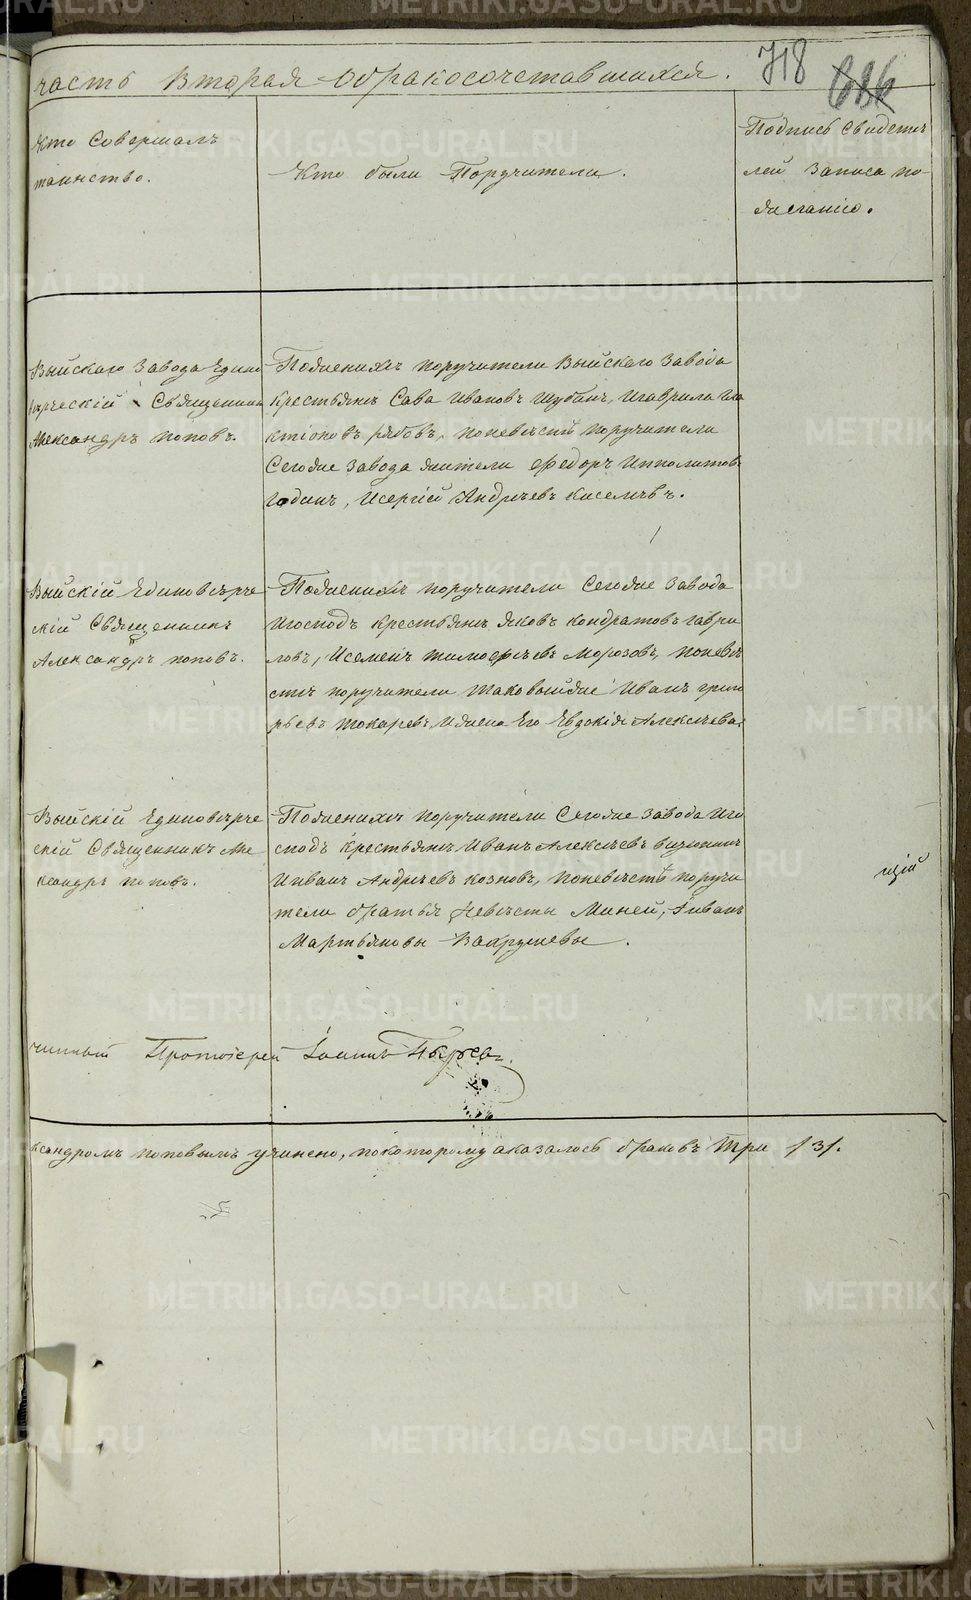 часть вторая о бракосочетавшихся. 718 686
Кто Совершалъ
таинство.
Кто были Поручители.
Подпись Свидете
лей Записа по
желанію.
Выйскаго Завода Едино
верческій Священникъ
Александръ поповъ.
Пожених поручители Выйскаго Завода
крестьянъ Сава Ивановъ Шубинъ, Игаврила Га
ктіоновъ рябовъ, поневѣстѣ поручители
Сегоже Завода жители Федоръ Ипполитовъ
Годинъ, Исергій Андреевъ Киселевъ.
Выйскій Единовѣрче
скій Священникъ
Александръ поповъ.
Пожених поручители Сегоже Завода
Игоспод крестьянъ яковъ кондратовъ гаври
ловъ, Исеменъ тимофѣевъ Морозовъ, поневѣ
стѣ поручители таковыйже Иванъ григо
рьевъ токаревъ, Ижена Его Евдокія Алексѣева.
Выйскій Единовѣрче
скій Священникъ Але
ксандръ поповъ.
Пожених поручители Сегоже Завода Иго
сподъ крестьянъ Иванъ Алексѣевъ
Ииванъ Андреевъ козновъ, поневѣстѣ поручи
тели братья Невѣсты Миней, Иванъ
Мартьяновы Вахрушевы.
щій
чинный Протоіерей Іоаннъ
ксандромъ поповымъ учинено, покоторому оказалось браковъ три /3/.
METRIKI.GASO-URAL.RU